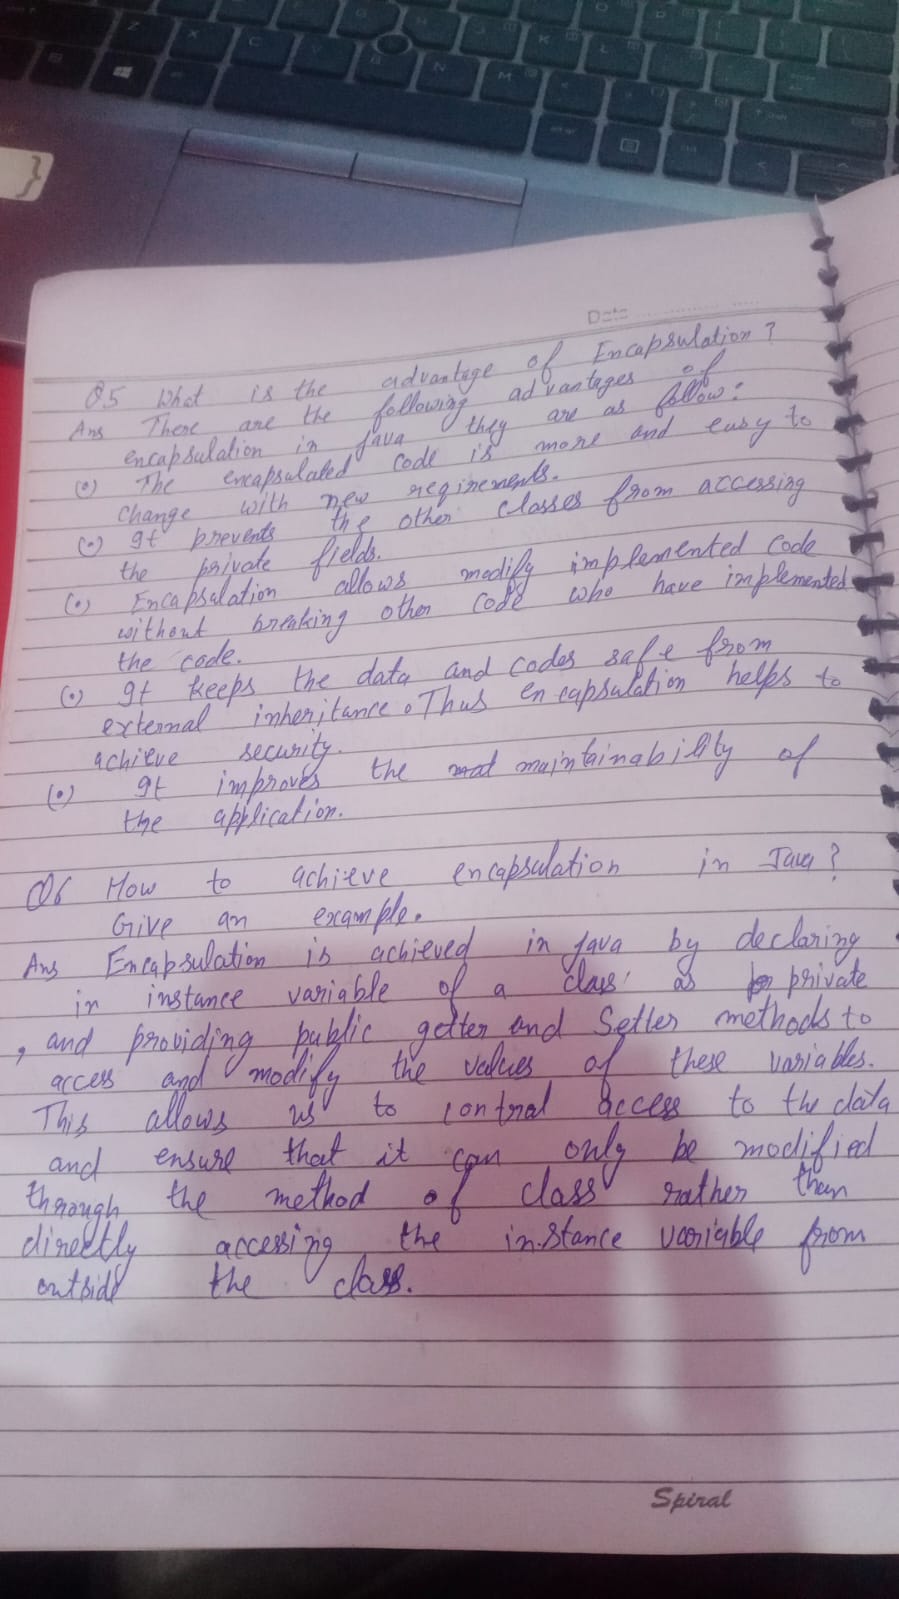 Date
Q5 What is the advantage of Encapsulation?
Ans There are the following advantages of
encapsulation in java they are as follow:
(•) The encapsulated code is more and easy to
change with new reqirements.
(•) It prevents the other classes from accessing
the private fields.
(•) Encapsulation allows modify implemented code
without breaking other code who have implemented
the code.
(•) It keeps the data and codes safe from
external inheritance. Thus encapsulation helps to
achieve security.
(•) It improves the maintainability of
the application.
Q6 How to achieve encapsulation in Java?
Give an example.
Ans Encapsulation is achieved in java by declaring
in instance variable of a class as private
, and providing public getter and Setter methods to
access and modify the values of these variables.
This allows us to control access to the data
and ensure that it can only be modified
through the method of class rather than
directly accessing the instance variable from
outside the class.
Spiral